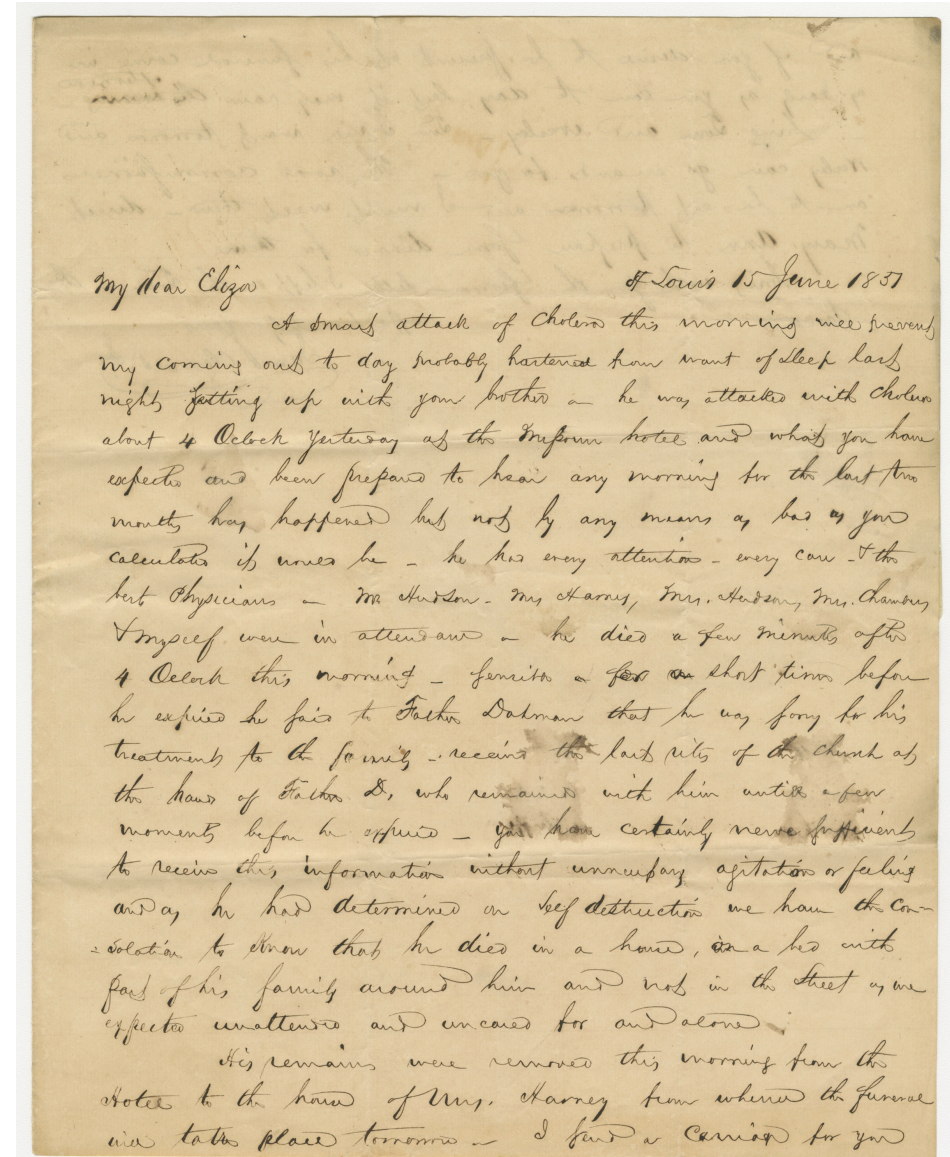 My dear Eliza St Louis 15 June 1837
A smart attack of Cholera this morning will prevent
my coming out to day probably hastened from want of sleep last
night sitting up with your brother – he was attacked with Cholera
about 4 Oclock yesterday at the Missouri hotel and what you have
expected and been prepared to hear any morning for the last two
months has happened but not by any means as bad as you
calculated it would be – he had every attention – every care – & the
best Physicians – Mr Hudson – Mrs Harney, Mrs. Hudson, Mrs. Chambers
& myself were in attendance – he died a few minutes after
4 Oclock this morning – sensible a short time before
he expired he said to Father Dahman that he was sorry for his
treatment to the family – received the last rites of the church at
the hand of Father D, who remained with him until a few
moments before he expired – you have certainly nerve sufficient
to receive this information without unnecessary agitation or feeling
and as he had determined on self destruction we have the con–
=solation to know that he died in a house, in a bed with
part of his family around him and not in the Street as we
expected unattended and uncared for and alone.
His remains were removed this morning from the
Hotel to the house of Mrs. Harney from whence the funeral
will take place tomorrow – I send a Carriage for you